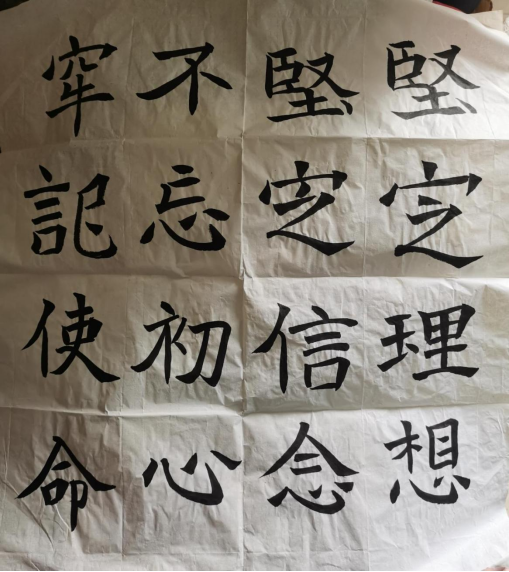 堅定理想
堅定信念
不忘初心
牢記使命